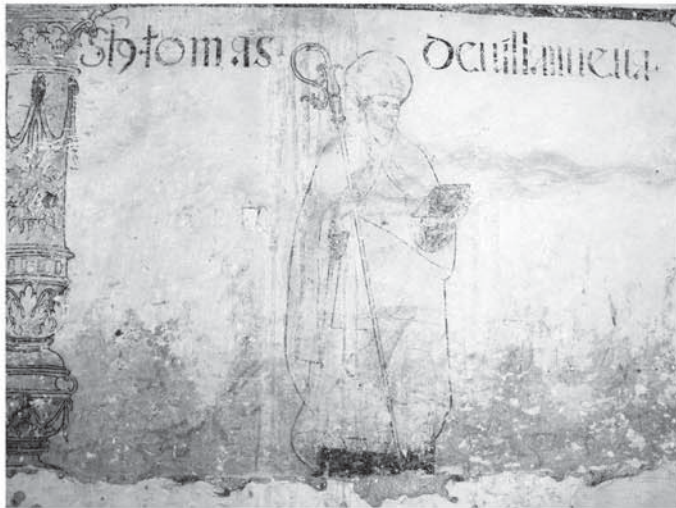 Sto tomas· deuillanueua·